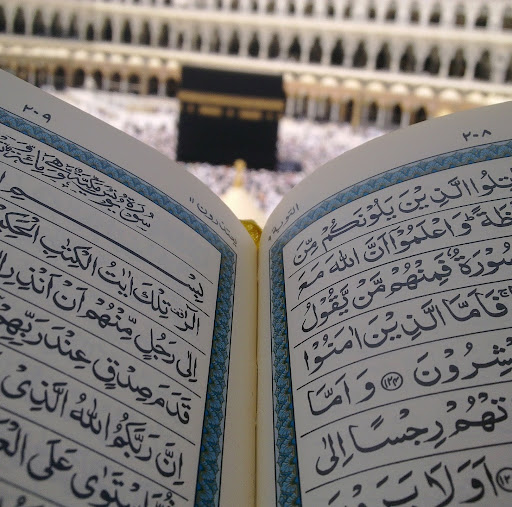 ٢٠٨
التوبة ٩
تِلُوا الَّذِيْنَ يَلُوْنَكُمْ مِّنَ
ظَةً ؕ وَاعْلَمُوْۤا اَنَّ اللّٰهَ مَعَ
سُوْرَةٌ فَمِنْهُمْ مَّنْ يَّقُوْلُ
فَاَمَّا الَّذِيْنَ اٰمَنُوْا
بْشِرُوْنَ ﴿١٢٤﴾ وَاَمَّا
تْهُمْ رِجْسًا اِلٰى
اَوَلَا يَرَوْنَ
٢٠٩
يعتذرون ١١
سُوْرَةُ يُوْنُسَ مَكِّيَّةٌ
بِسْمِ
الٓرٰ ۫ تِلْكَ اٰيٰتُ الْكِتٰبِ الْحَكِيْمِ
اِلٰى رَجُلٍ مِّنْهُمْ اَنْ اَنْذِرِ
قَدَمَ صِدْقٍ عِنْدَ رَبِّهِمْ
اِنَّ رَبَّكُمُ اللّٰهُ الَّذِيْ
ثُمَّ اسْتَوٰى عَلَى